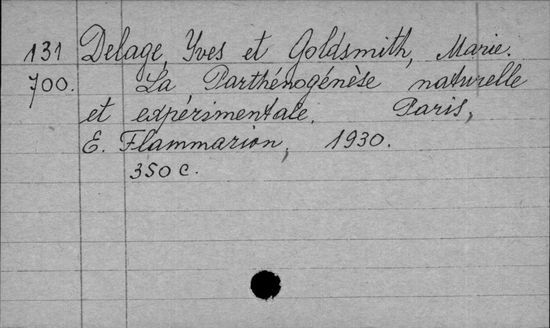 131 Delage, Yves et Goldsmith, Marie.
700. La Parthénogénèse naturelle
et expérimentale. Paris,
E. Flammarion, 1930.
350 c.